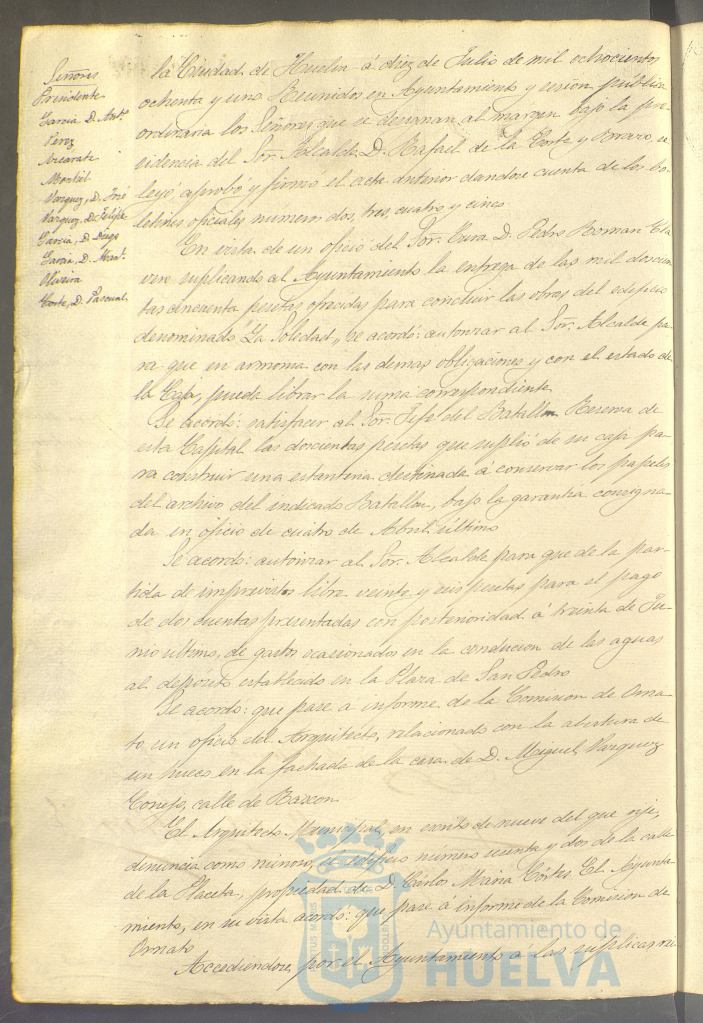 Señores
Presidente
Garcia D. Antº
Perez
Azcarate
Montiel
Vazquez, D. José
Vazquez, D. Felipe
Garcia, D. Diego
Garcia, D. Man.
Oliveira
Corte, D. Pascual
la Ciudad de Huelva á diez de Julio de mil ochocientos
ochenta y uno Reunidos en Ayuntamiento y sesion pública
ordinaria los Señores que se designan al margen bajo la pre-
sidencia del Sor. Alcalde D. Rafael de la Corte y Bravo, se
leyó aprobó y firmó el acta anterior dandose cuenta de los bo-
letines oficiales numero dos, tres, cuatro y cinco
En vista de un oficio del Sor. Cura D. Pedro Roman Cla
vero suplicando al Ayuntamiento la entrega de las mil doscien
tas cincuenta pesetas ofrecidas para concluir las obras del edificio
denominado "La Soledad", se acordó: autorizar al Sor. Alcalde pa-
ra que en armonia con las demas obligaciones y con el estado de
la Caja, pueda librar la suma correspondiente
Se acordó: satisfacer al Sor. Jefe del Batallon Reserva de
esta Capital las doscientas pesetas que suplió de su caja pa-
ra construir una estanteria destinada á conservar los papeles
del archivo del indicado Batallon, bajo la garantia consigna-
da en oficio de cuatro de Abril último
Se acordó: autorizar al Sor. Alcalde para que de la par-
tida de imprevistos libre veinte y seis pesetas para el pago
de dos cuentas presentadas con posterioridad á treinta de Ju-
nio último, de gastos ocasionados en la conducion de las aguas
al depósito establecido en la Plaza de San Pedro
Se acordó: que pase a informe de la Comision de Orna-
to, un oficio del Arquitecto, relacionado con la abertura de
un hueco en la fachada de la casa de D. Miguel Vazquez
Conejo, calle de Rascon
El Arquitecto Municipal, en escrito de nueve del que rije,
denuncia como ruinoso, el edificio número ochenta y dos de la calle
de la Placeta, propiedad de D. Cárlos Maria Córtes El Ayunta-
miento, en su vista acordó: que pase á informe de la Comision de
Ornato
Accediendose, por el Ayuntamiento á las suplicas ori
Ayuntamiento de
HUELVA